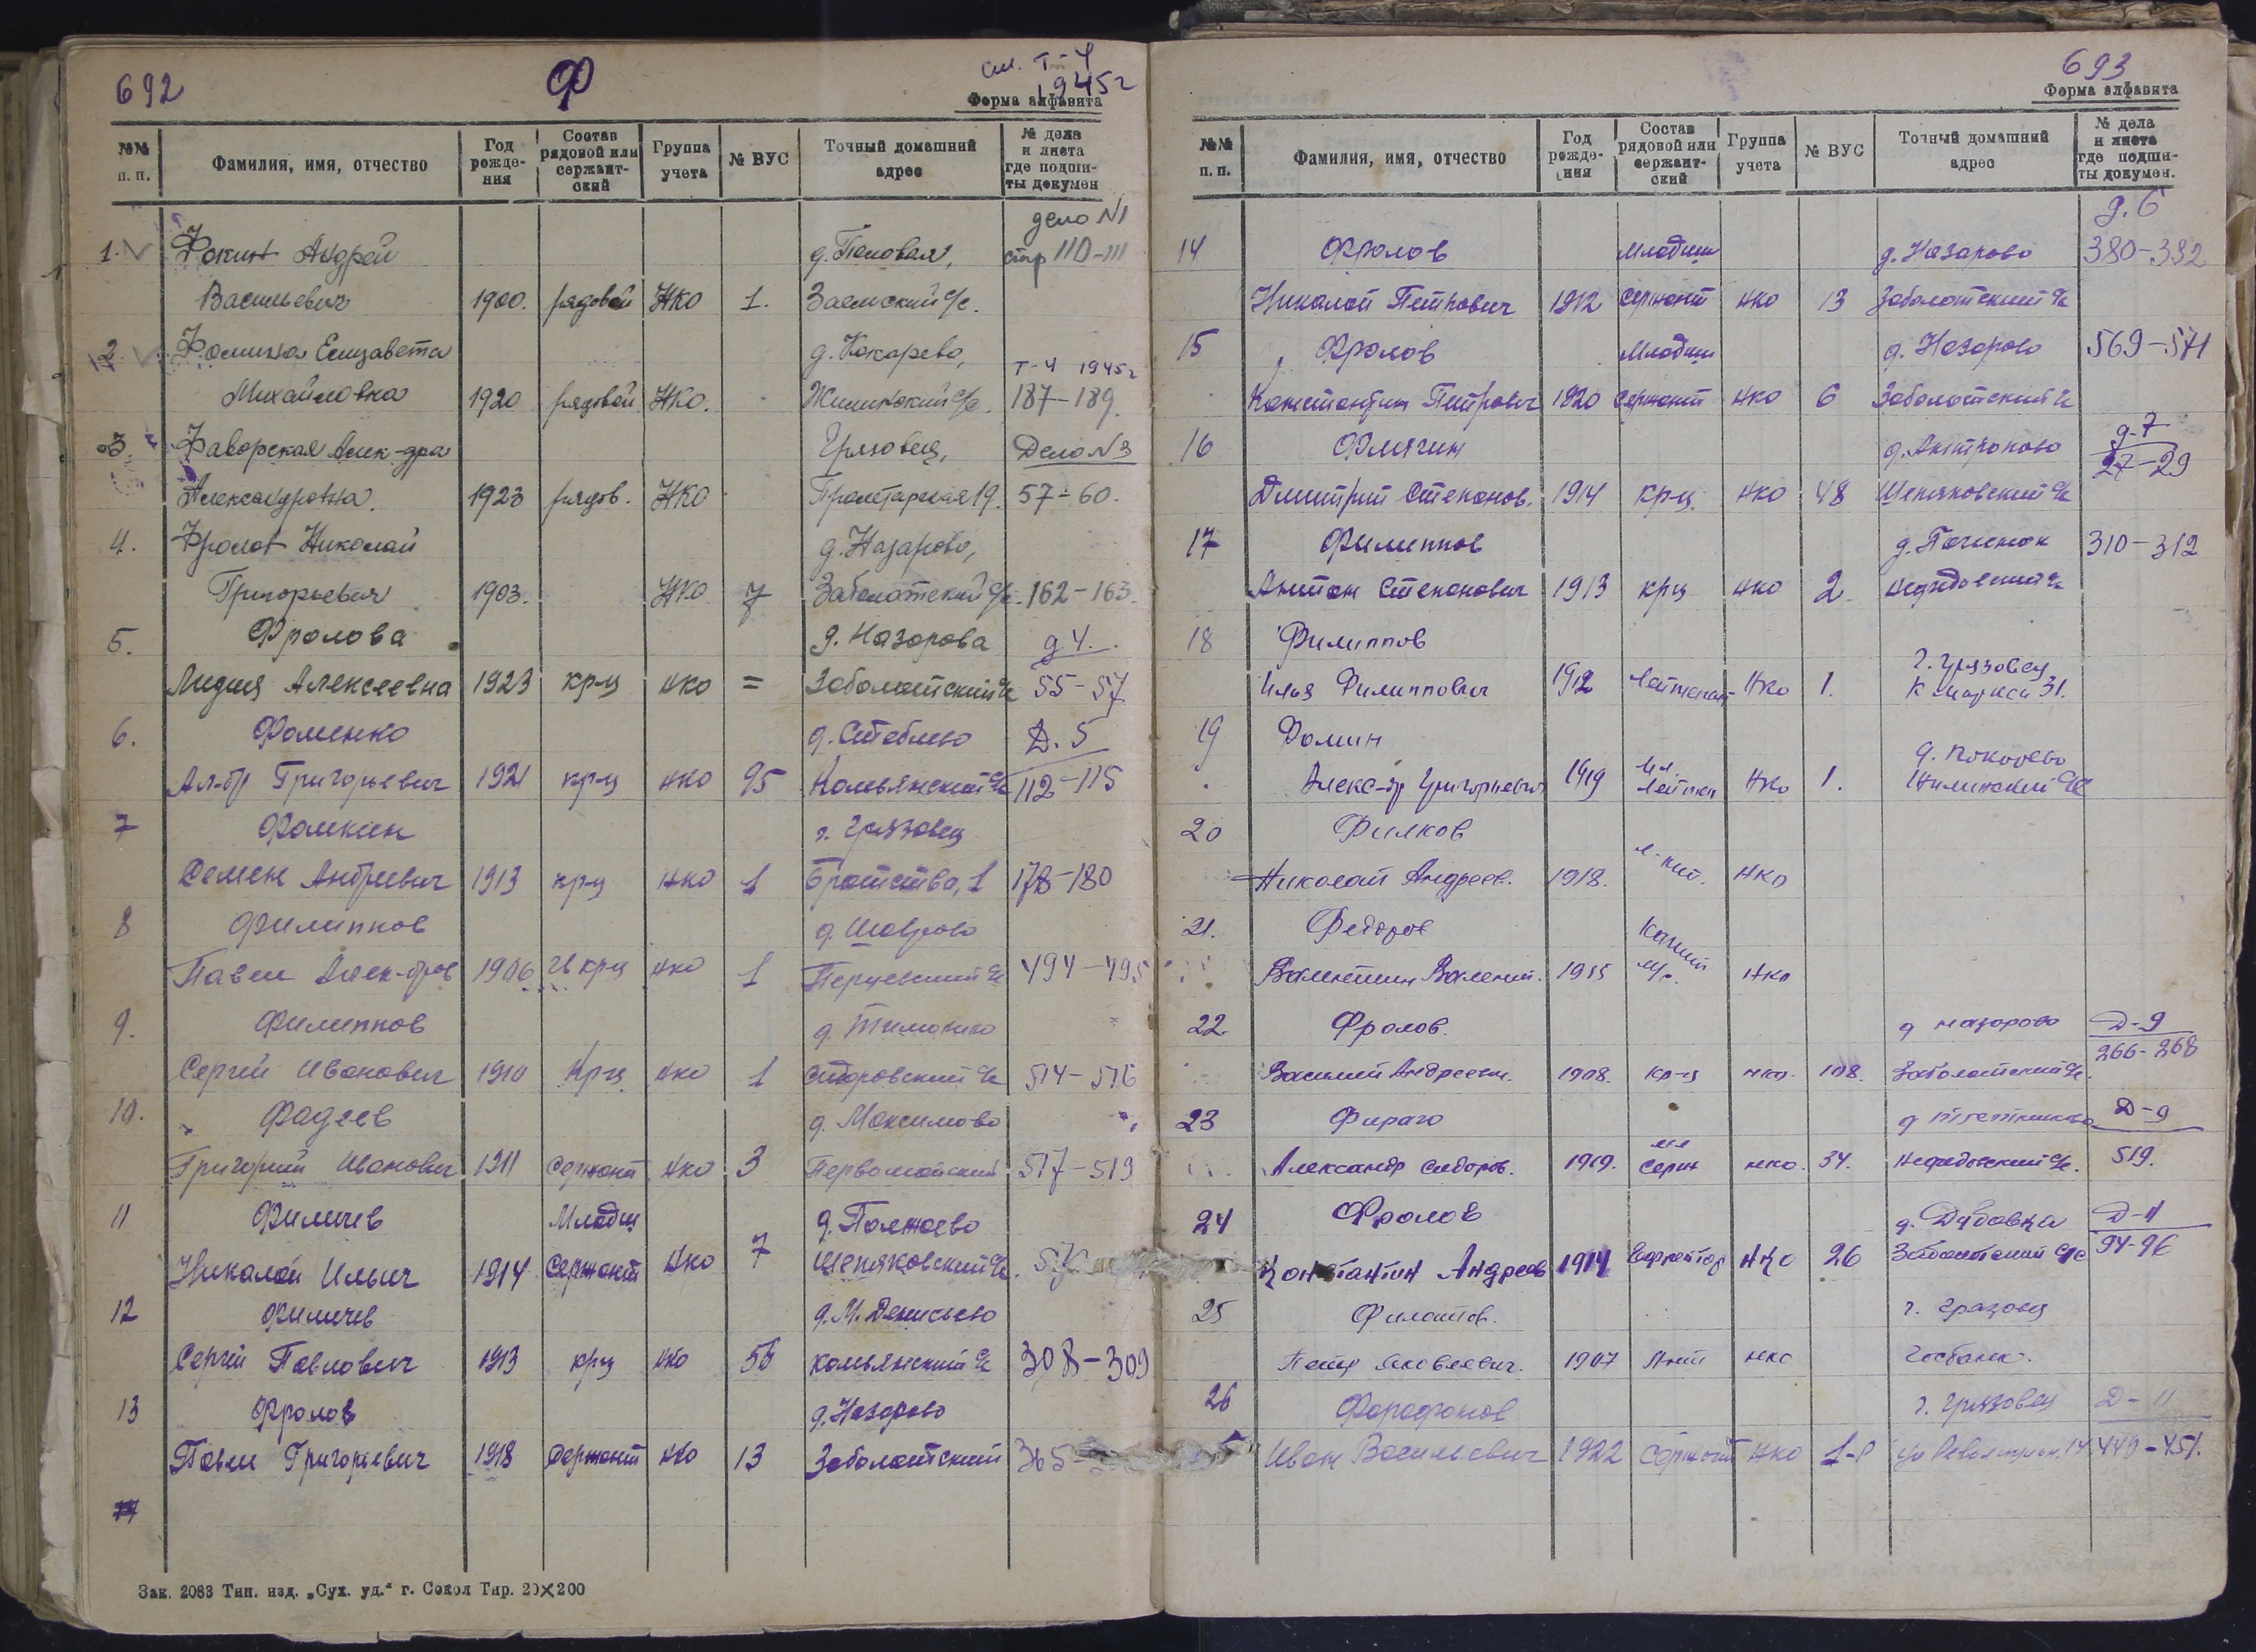 692
Ф
см. Т-4
1945г
Форма алфавита
№№ п. п. | Фамилия, имя, отчество | Год рожде-ния | Состав рядовой или сержант-ский | Группа учета | № ВУС | Точный домашний адрес | № дела и листа где подши-ты докумен
дело N1
1. Фокин Андрей д. Поповая, стр 110-111
Васильевич 1900. рядовой НКО 1. Заемский с/с.
2. Фомина Елизавета д. Кокарево, Т-4 1945г
Михайловна 1920 рядовой НКО. Жилинский с/с. 187-189.
3. Фаворская Алек-дра Грязовец, Дело N3
Александровна. 1923 рядов. НКО Пролетарская 19. 57-60.
4. Фролов Николай д. Назарово,
Григорьевич 1903. НКО 7 Заболотский с/с. 162-163.
5. Фролова д. Назорова д 4.
Лидия Алексеевна 1923 кр-ц нко = Заболотский с/с 55-57
6. Фоменко д. Стеблево Д. 5
Ал-др Григорьевич 1921 кр-ц нко 95 Комьянский с/с 112-115
7 Фомкин г. Грязовец
Семен Андреевич 1913 кр-ц нко 1 Братства, 1 178-180
8 Филиппов д. Шаврово
Павел Алек-дров 1906 гв крц нко 1 Перцевский с/с 494-495
9. Филиппов
Сергей Иванович 1910 Крц нко 1 Сидоровский с/с 514-516
10. Фадеев д. Максимово
Григорий Иванович 1911 Сержант нко 3 Первомайский 517-519
11 Филичев Младш д. Полтаево
Николай Ильич 1914 Сержант нко 7 Шепяковский с/с.
12 Филичев д. М. Денисьево
Сергей Павлович 1913 крц нко комьянский с/с 308-309
13 Фролов д. Назорово
Павел Григорьевич 1918 Сержант нко 13 Заболотский 365-
14
Зак. 2083 Тип. изд. „Сух. уд.“ г. Сокол Тир. 20×200
693
Форма алфавита
№№ п. п. | Фамилия, имя, отчество | Год рожде-ния | Состав рядовой или сержант-ский | Группа учета | № ВУС | Точный домашний адрес | № дела и листа где подши-ты докумен.
д. 6
14 Фролов Младши д. Назарово 380-382
Николай Петрович 1912 Сержант нко 13 Заболотский с/с
15 Фролов Младши д. Назорово 569-571
Константин Петрович 1920 Сержант нко 6 Заболотский с/с
16 Флягин д. Антропово д-7
27-29
Дмитрий Степанов. 1914 кр-ц нко 48 Шепяковский с/с
17 Филиппов д. Починок 310-312
Антон Степанович 1913 крц нко 2 Нефедовский с/с
18 Филиппов
г. Грязовец
Илья Филиппович 1912 Лейтенант НКо 1. К Маркса 31.
19 Фомин
д. Покорево
Алекс-др Григорьевич 1919 Мл. Лейтен НКо 1. Жилинский с/с
20 Филков
Николай Андреев. 1918. л-нт. НКО
21. Федоров
Валентин Валент. 1915 НКО
22. Фролов. д Назорово Д-9
266-268
Василий Андреевич. 1908. кр-ц нко. 108. Заболотский с/с.
23 Фираго Д-9
Александр Сидоров. 1919. мл Серж нко. 34. Нефедовский с/с. 519.
24 Фролов д. Дубовка Д-11
Константин Андреев 1914 Ефрейтор НКО 26 Заболотский с/с 94-96
25 Филатов. г. Грязовец
Петр Яковлевич. 1907 Лнт нко Госбанк.
26 Фарафонов г. Грязовец Д-11
Иван Васильевич 1922 Сержант НКО 1-Р 449-451.